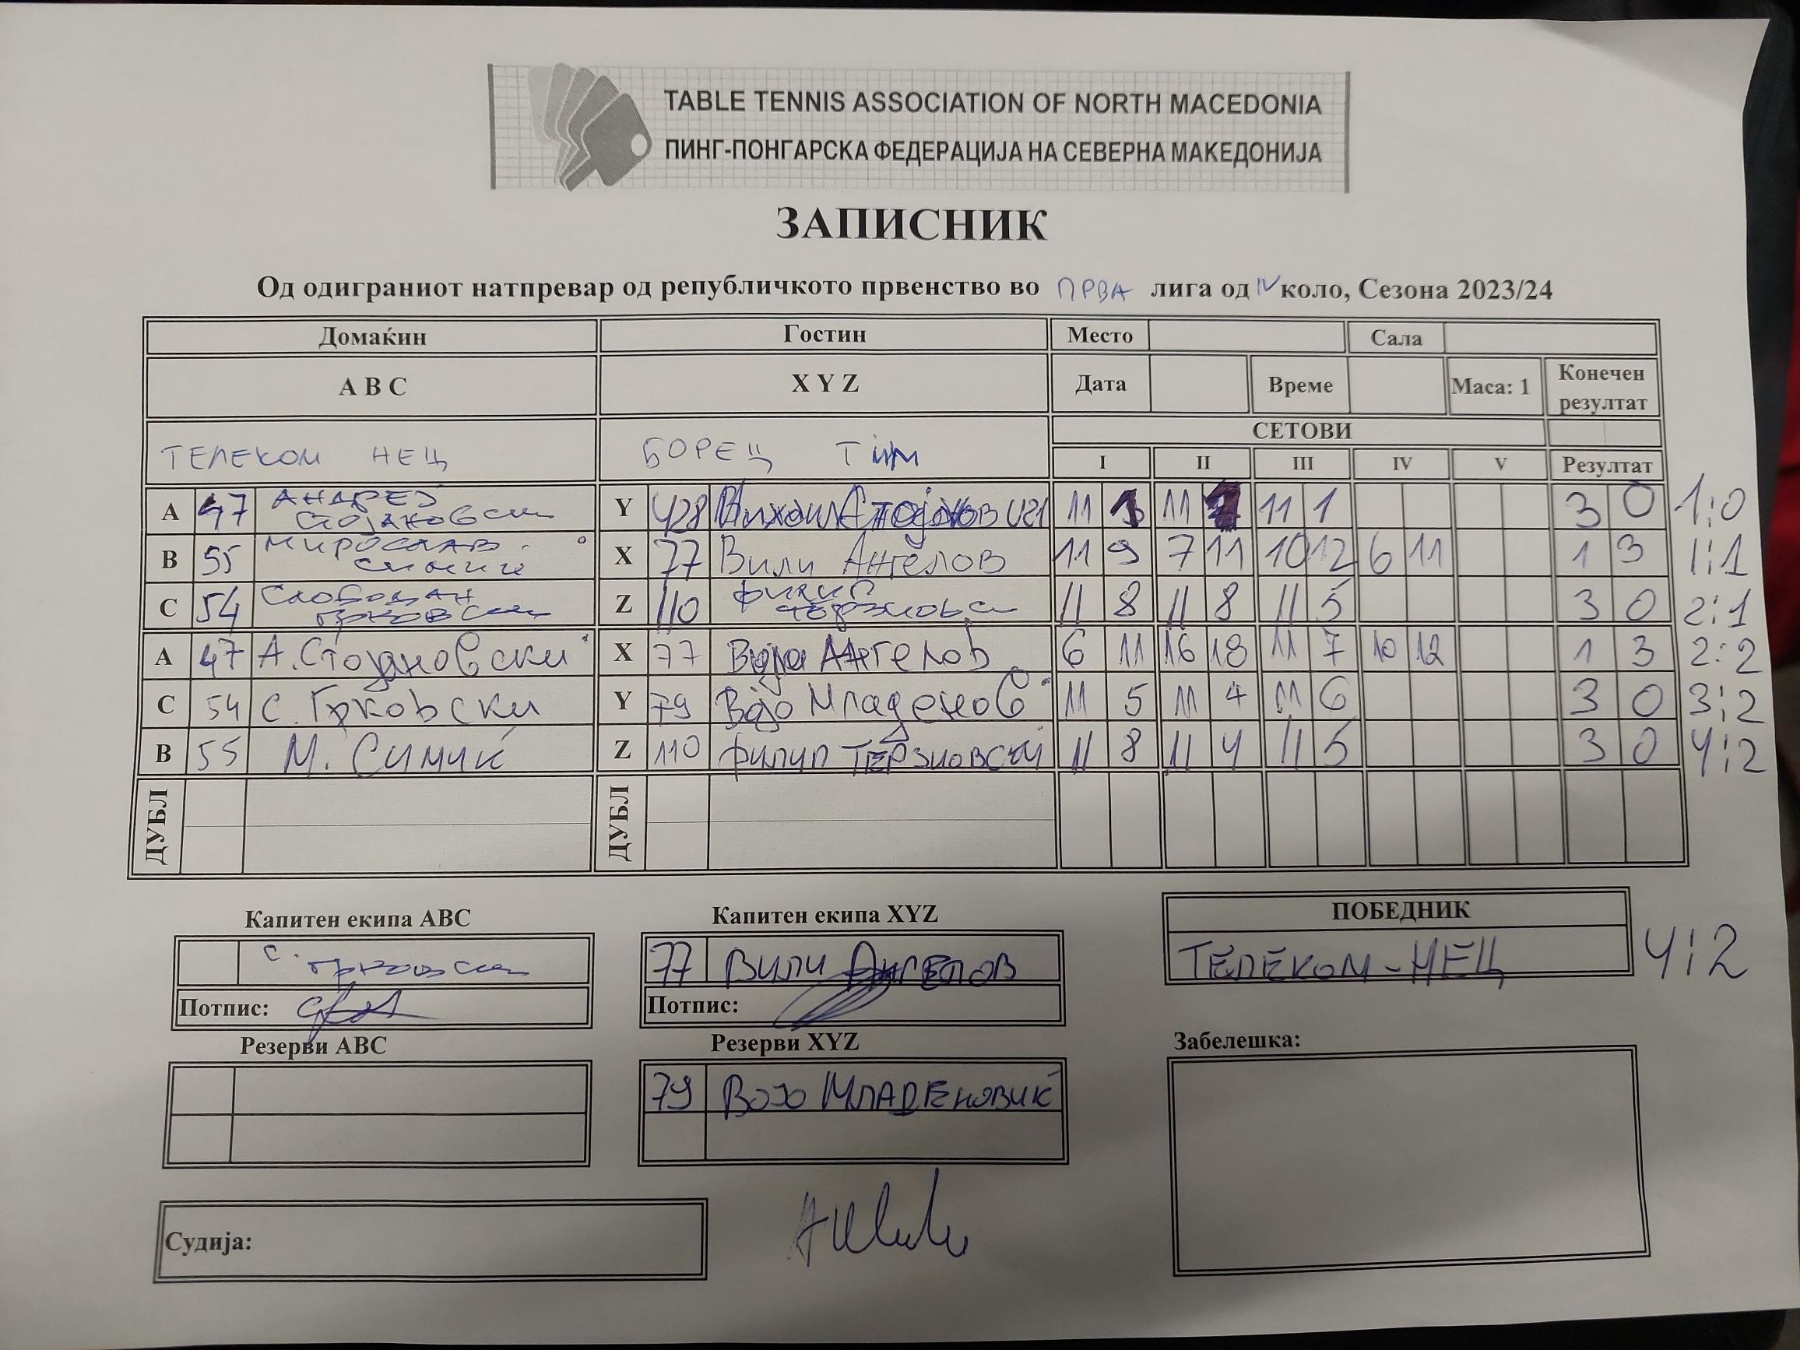 TABLE TENNIS ASSOCIATION OF NORTH MACEDONIA
ПИНГ-ПОНГАРСКА ФЕДЕРАЦИЈА НА СЕВЕРНА МАКЕДОНИЈА
ЗАПИСНИК
Од одиграниот натпревар од републичкото првенство во ПРВА лига од IV коло, Сезона 2023/24
Домаќин Гостин Место Сала
A B C X Y Z Дата Време Маса: 1 Конечен резултат
ТЕЛЕКОМ НЕЦ БОРЕЦ Тим СЕТОВИ
I II III IV V Резултат
A 47 АНДРЕЈ Стојановски Y 428 Стојанов U21 11 11 11 1 3 0 1:0
B 55 Мирослав Симиќ X 77 Вили Ангелов 11 9 7 11 10 12 6 11 1 3 1:1
C 54 Слободан Грковски Z 110 Филип 11 8 11 8 11 5 3 0 2:1
A 47 А. Стојановски X 77 Ангелов 6 11 16 18 11 7 10 12 1 3 2:2
C 54 С. Грковски Y 79 Војо Младенов 11 5 11 4 11 6 3 0 3:2
B 55 М. Симиќ Z 110 Филип ТЕРЗИОВСКИ 11 8 11 4 11 5 3 0 4:2
ДУБЛ ДУБЛ
Капитен екипа ABC Капитен екипа XYZ ПОБЕДНИК
С. Грковски 77 ВИЛИ АНГЕЛОВ ТЕЛЕКОМ-НЕЦ 4:2
Потпис: Потпис:
Резерви ABC Резерви XYZ Забелешка:
79 ВОЈО МЛАДЕНОВИЌ
Судија: